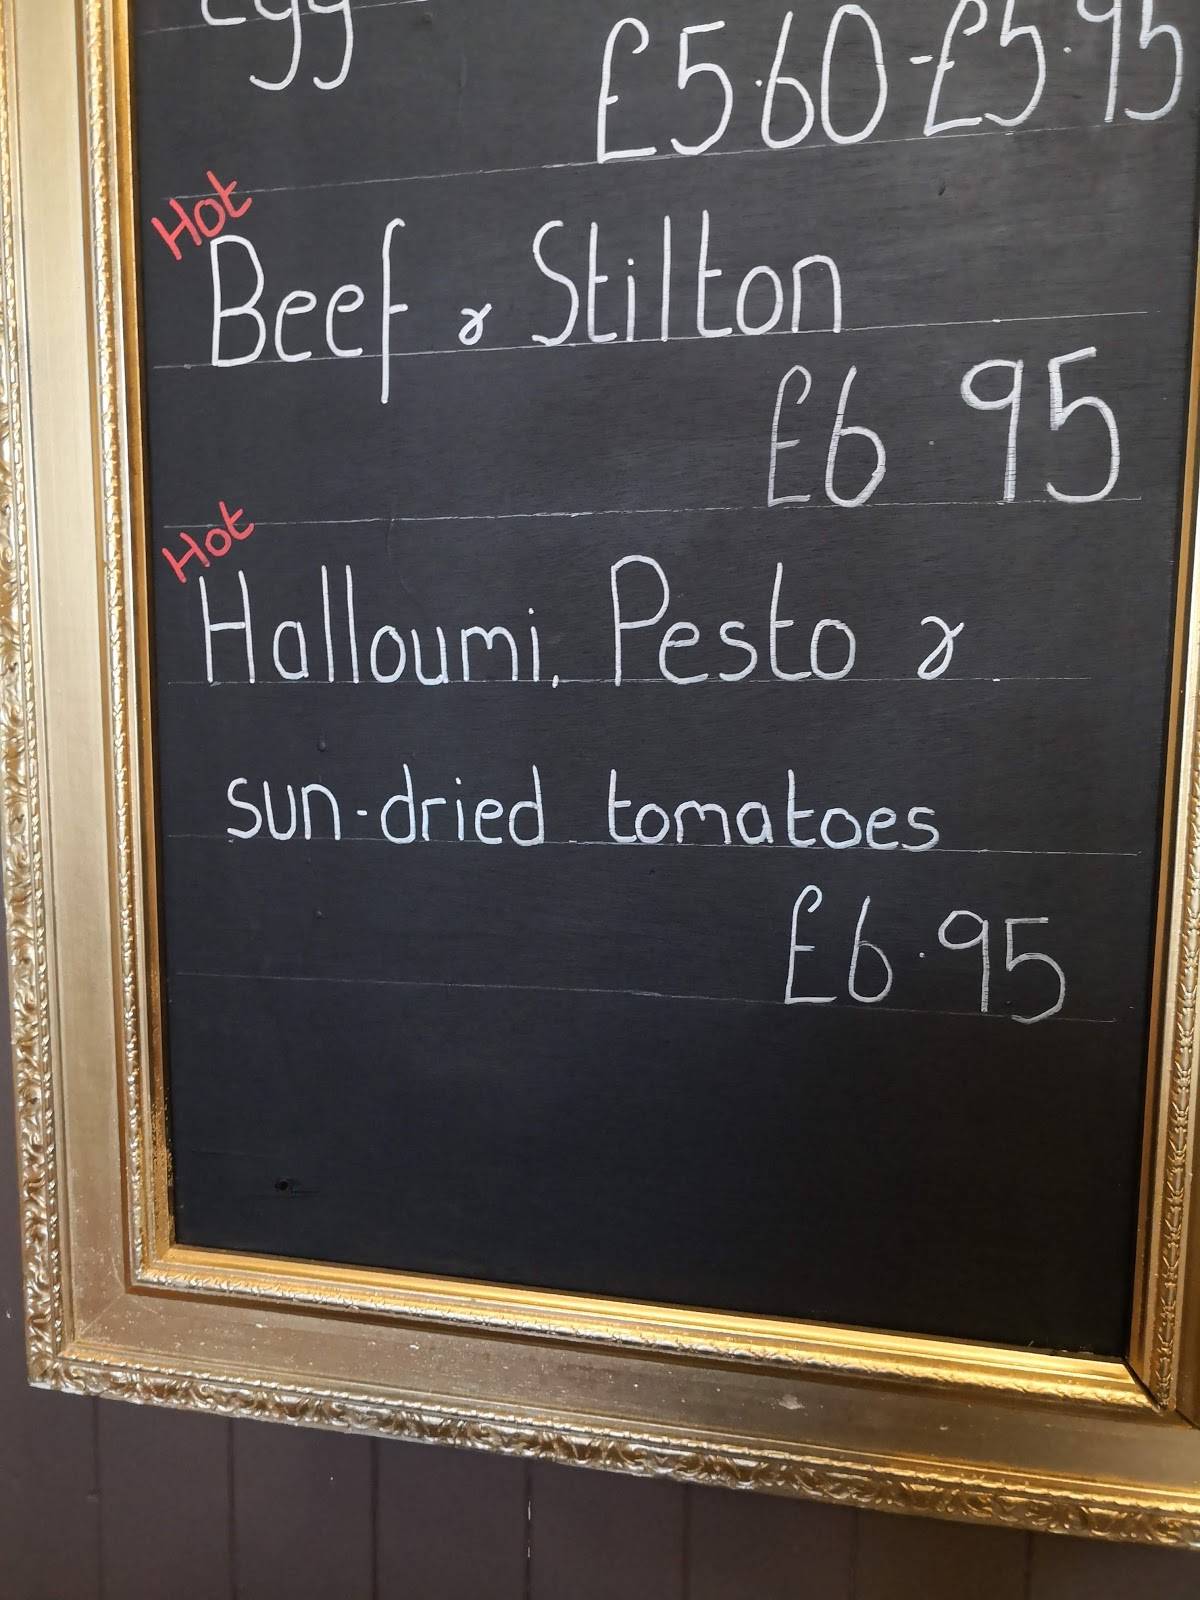 Egg
£5.60-£5.95
Hot
Beef & Stilton
£6.95
Hot
Halloumi, Pesto &
sun-dried tomatoes
£6.95